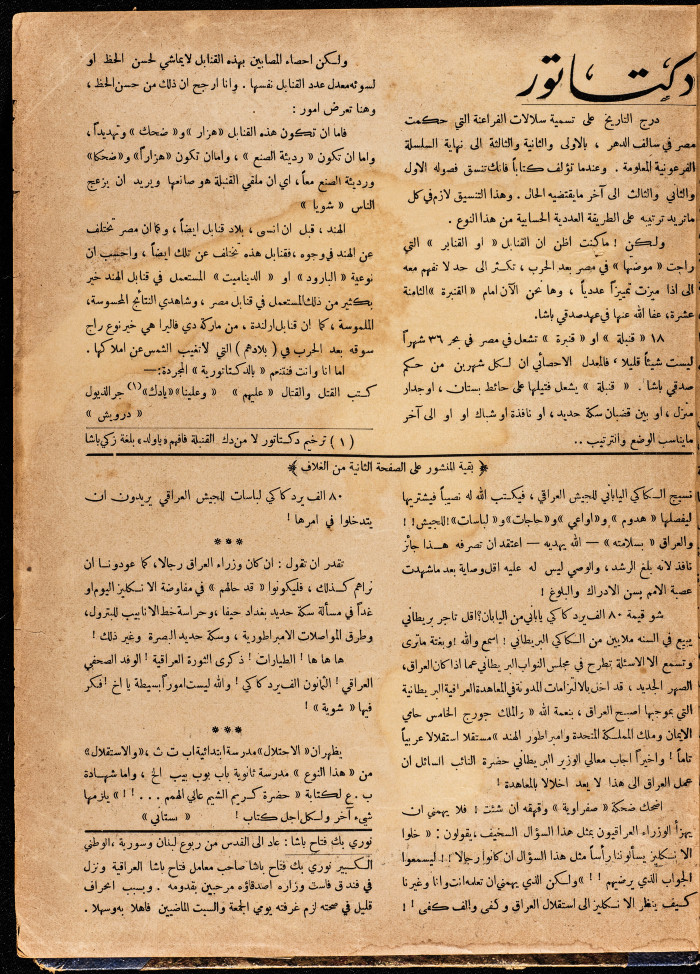 دكتاتور
درج التاريخ على تسمية سلالات الفراعنة التي حكمت
مصر في سالف الدهر ، بالاولى والثانية والثالثة الى نهاية السلسلة
الفرعونية المعلومة . وعندما تؤلف كتاباً فانك تنسق فصوله الاول
والثاني والثالث الى آخر ما يقتضيه الحال . وهذا التنسيق لازم في كل
ما تريد ترتيبه على الطريقة العددية الحسابية من هذا النوع .
ولكن ! ما كنت اظن ان القنابل « او القنابر » التي
راجت « موضتها » في مصر بعد الحرب ، تكثر الى حد لا تفهم معه
الى اذا ميزت تمييزاً عددياً ، وها نحن الآن امام « القنبرة » الثامنة
عشرة، عفا الله عنها في عهد صدقي باشا.
١٨ « قنبلة » او « قنبرة » تشعل في مصر في بحر ٣٦ شهراً
ليست شيئاً قليلا ، فالمعدل الاحصائي ان لكل شهرين من حكم
صدقي باشا . « قنبلة » يشعل فتيلها على حائط بستان ، او جدار
منزل ، او بين قضبان سكة حديد ، او نافذة او شباك او او الى آخر
ما يناسب الوضع والترتيب ..
ولكن احصاء المصابين بهذه القنابل لا يماشي لحسن الحظ او
لسوئه معدل عدد القنابل نفسها . وانا ارجح ان ذلك من حسن الحظ ،
وهنا تعرض امور :
فاما ان تكون هذه القنابل « هزار » و« ضحك » وتهديداً ،
واما ان تكون « رديئة الصنع » ، واما ان تكون « هزاراً » و« ضحكا»
ورديئة الصنع معاً ، اي ان ملقي القنبلة هو صانعها ويريد ان يزعج
الناس « شويا »
الهند ، قبل ان انسى ، بلاد قنابل ايضاً ، وكما ان مصر تختلف
عن الهند في وجوه ، فقنابل هذه تختلف عن تلك ايضاً ، واحسب ان
نوعية « البارود » او « الديناميت » المستعمل في قنابل الهند خير
بكثير من ذلك المستعمل في قنابل مصر ، وشاهدي النتائج المحسوسة ،
الملموسة ، كما ان قنابل ارلندة ، من ماركة دي فاليرا هي خير نوع راج
سوقه بعد الحرب في ( بلادهم ) التي لا تغيب الشمس عن املاكها .
اما انا وانت فنتنعم « بالدكتاتورية » المجردة:—
كتب القتل والقتال « عليهم » « وعلينا » « يادك» (١) جر الذيول
« درويش »
( ١ ) ترخيم دكتاتور لا من دك القنبلة فافهم « ياولد» بلغة زكي باشا
﴿ بقية المنشور على الصفحة الثانية من الغلاف ﴾
نسيج الكاكي الياباني للجيش العراقي ، فيكتب الله له نصيباً فيشتريها
ليفصلها « هدوم » و« اواعي » و« حاجات» و« لباسات» للجيش ! !
والعراق « بسلامته » — الله يهديه — اعتقد ان تصرفه هذا جائز
نافذ لانه بلغ الرشد ، والوصي ليس له عليه اقل وصاية بعد ما شهدت
عصبة الامم بسن الادراك والبلوغ !
شو قيمة ٨٠ الف يرد كاكي ياباني من اليابان؟ اقل تاجر بريطاني
يبيع في السنه ملايين من الكاكي البريطاني ! اسمع والله ! وبغتة ماترى
وتسمع الا الاسئلة تطرح في مجلس النواب البريطاني عما اذا كان العراق،
الصهر الجديد ، قد اخل بالالتزامات المدونة في المعاهدة العراقية البريطانية
التي بموجبها اصبح العراق ، بنعمة الله « والملك جورج الخامس حامي
الايمان وملك المملكة المتحدة وامبراطور الهند » مستقلا استقلالا عربياً
تاماً ! واخيراً اجاب معالي الوزير البريطاني حضرة النائب السائل ان
عمل العراق الى هذا لا يعد اخلالا بالمعاهدة !
اضحك ضحكة « صفراوية » وقهقه ان شئت ! فلا يهمني ان
يهزأ الوزراء العراقيون بمثل هذا السؤال السخيف ، يقولون : « خلوا
الانكليز يسألوننا رأساً مثل هذا السؤال ان كانوا رجالا ! ! ليسمعوا
الجواب الذي يرضيهم ! ! » ولكن الذي يهمني ان تعلمه انت وانا وغيرنا
كيف ينظر الانكليز الى استقلال العراق و كفى والف كفى ! !
٨٠ الف يرد كاكي لباسات للجيش العراقي يريدون ان
يتدخلوا في امرها !
***
نقدر ان نقول : ان كان وزراء العراق رجالا ، كما عودونا ان
نراهم كذلك ، فليكونوا « قد حالهم » في مفاوضة الانكليز اليوم او
غداً في مسألة سكة حديد بغداد حيفا ، وحراسة خط الانابيب للبترول،
وطرق المواصلات الامبراطورية ، وسكة حديد البصرة وغير ذلك !
ها ها ها ! الطيارات ! ذكرى الثورة العراقية ! الوفد الصحفي
العراقي ! الثمانون الف يرد كاكي ! والله ليست اموراً بسيطة يا اخ ! فكر
فيها « شوية » !
***
يظهر ان « الاحتلال » مدرسة ابتدائية اب ت ث ، « والاستقلال»
من « هذا النوع » مدرسة ثانوية باب بوب بيب الخ ، واما شهادة
ب . ع لكتابة « حضرة كريم الشيم عالي الهمم . . . ! ! » يلزمها
شيء آخر ولكل اجل كتاب ! « بستاني »
نوري بك فتاح باشا : عاد الى القدس من ربوع لبنان وسورية ، الوطني
الكبير نوري بك فتاح باشا صاحب معامل فتاح باشا العراقية ونزل
في فندق فاست وزاره اصدقاؤه مرحبين بقدومه . وبسبب انحراف
قليل في صحته لزم غرفته يومي الجمعة والسبت الماضيين فاهلا به وسهلا .